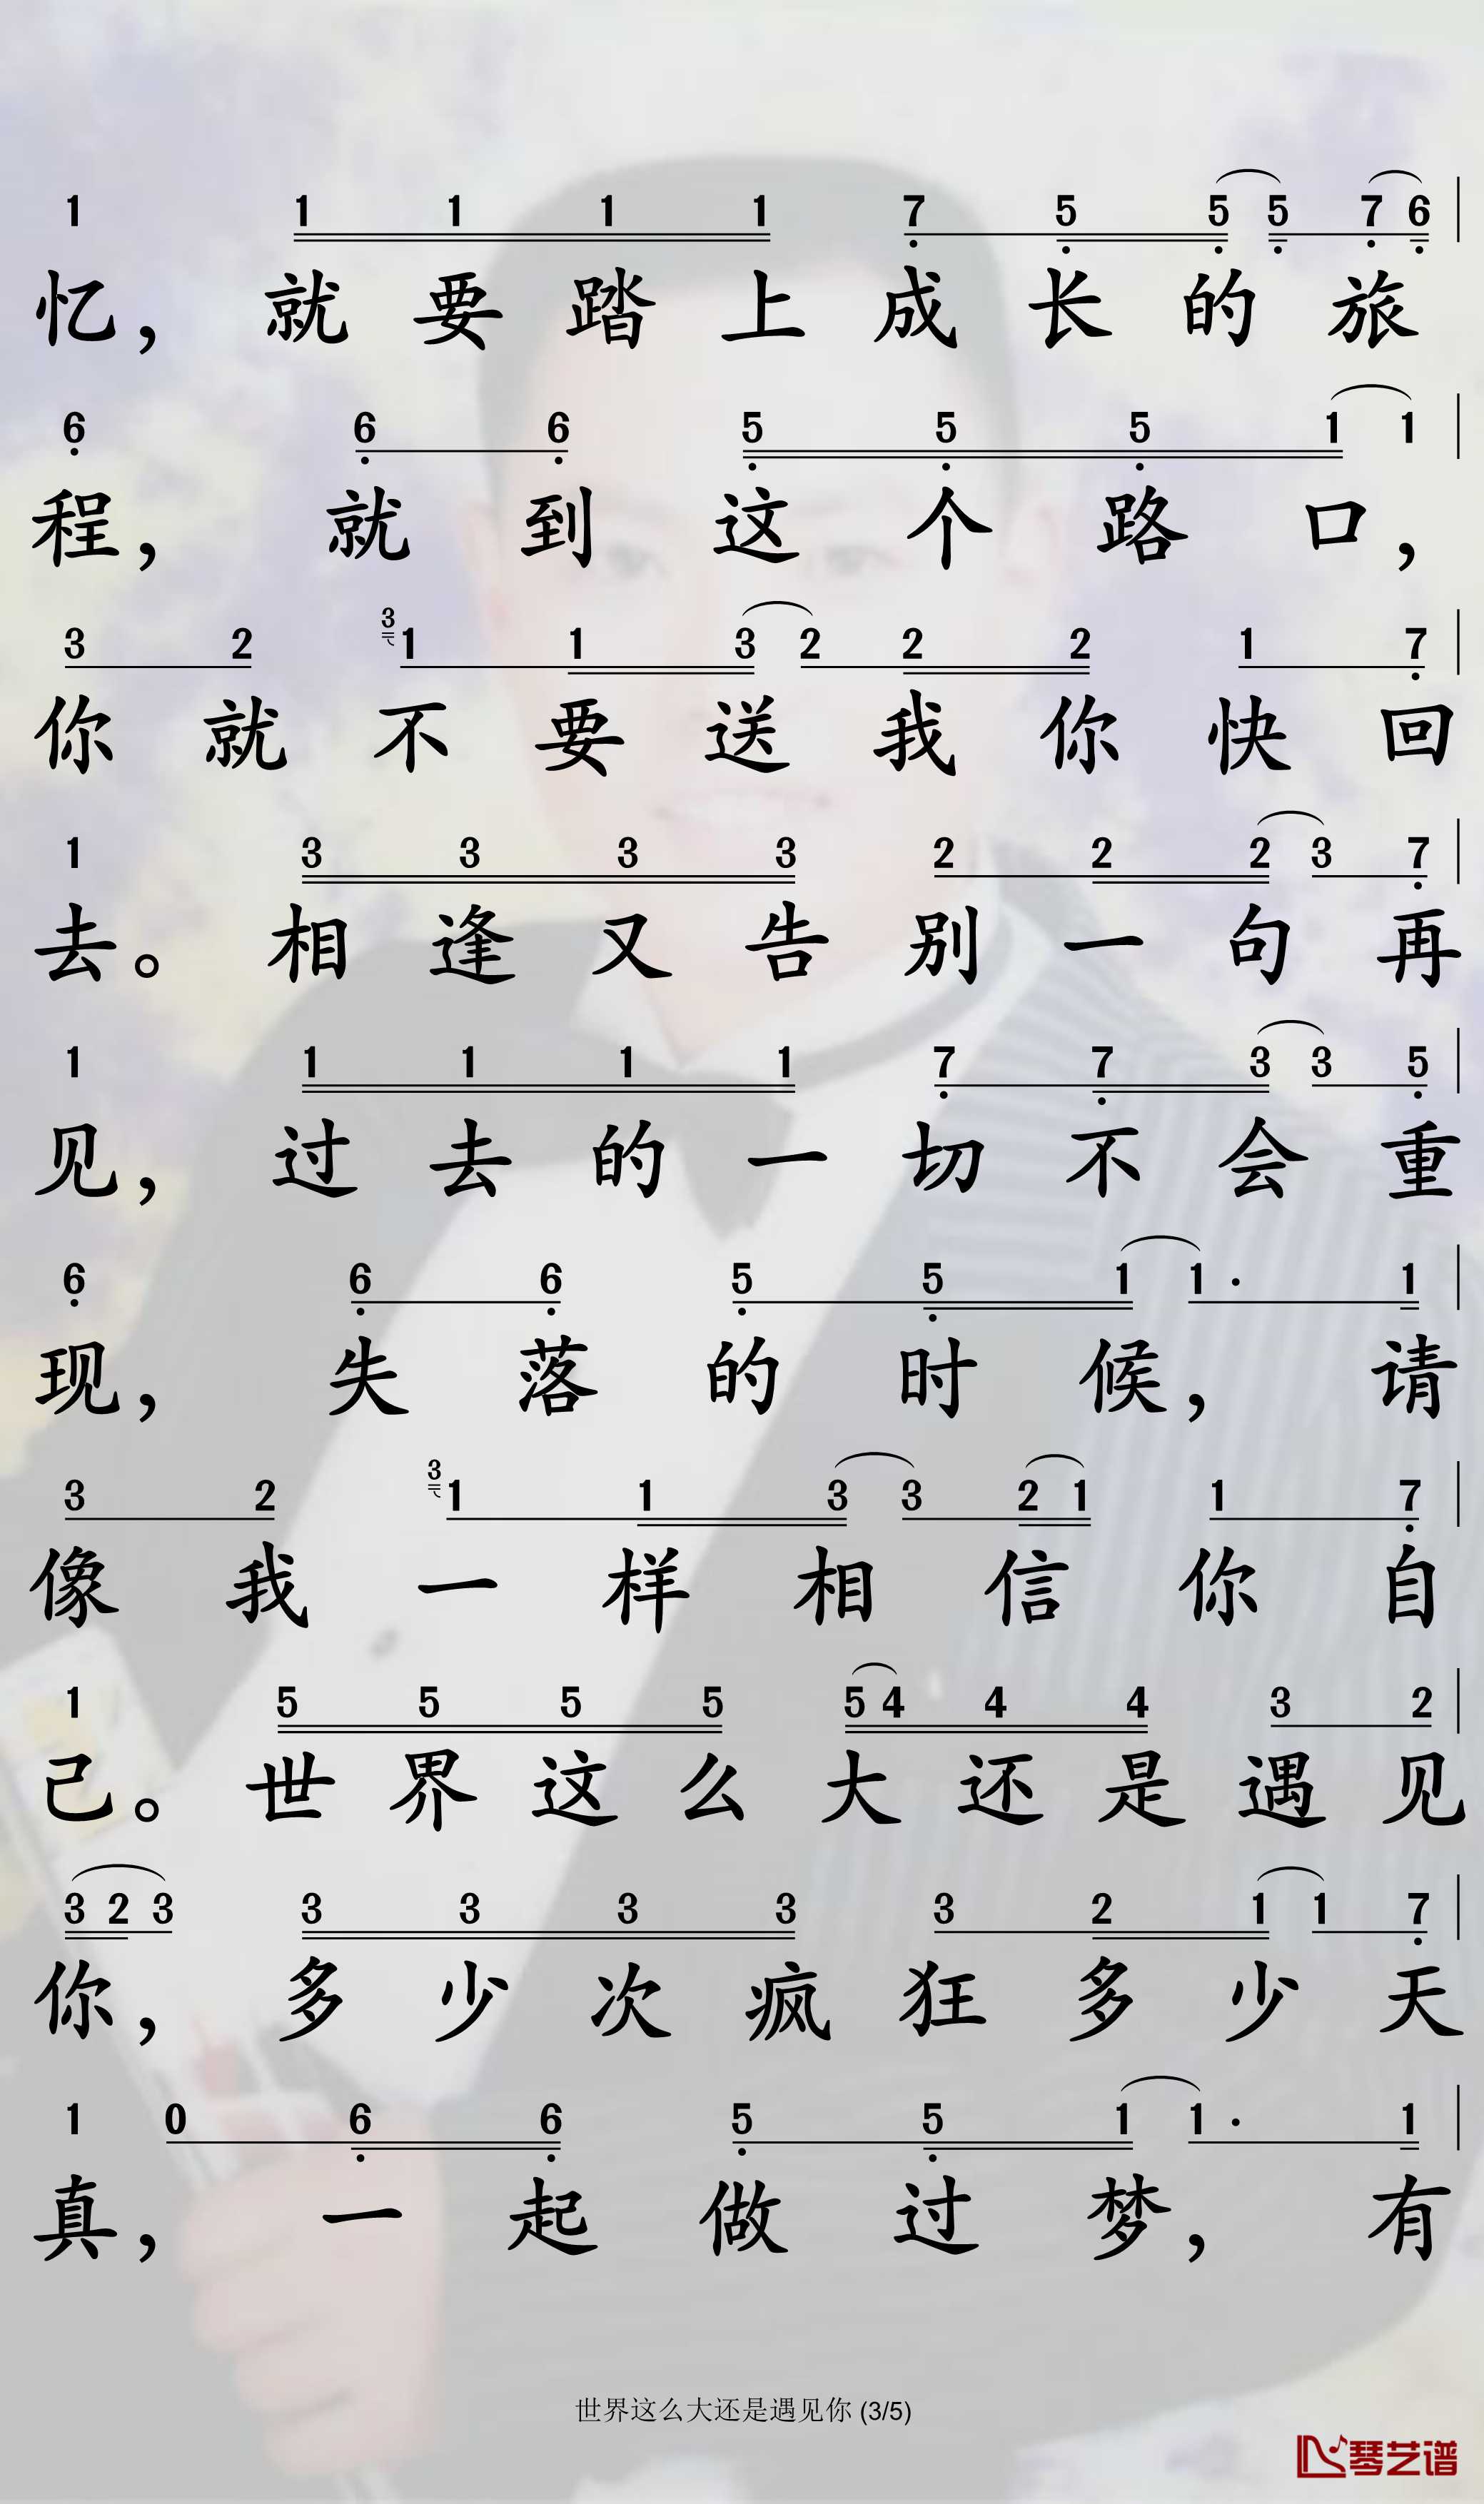 1 1 1 1 1 7 5 5 5 7 6
忆，就要踏上成长的旅
6 6 6 5 5 5 1 1
程，就到这个路口，
3 2 3 1 1 3 2 2 2 1 7
你就不要送我你快回
1 3 3 3 3 2 2 2 3 7
去。相逢又告别一句再
1 1 1 1 1 7 7 3 3 5
见，过去的一切不会重
6 6 6 5 5 1 1· 1
现，失落的时候，请
3 2 3 1 1 3 3 2 1 1 7
像我一样相信你自
1 5 5 5 5 5 4 4 4 3 2
己。世界这么大还是遇见
3 2 3 3 3 3 3 3 2 1 1 7
你，多少次疯狂多少天
1 0 6 6 5 5 1 1· 1
真，一起做过梦，有
世界这么大还是遇见你 (3/5)
琴艺谱